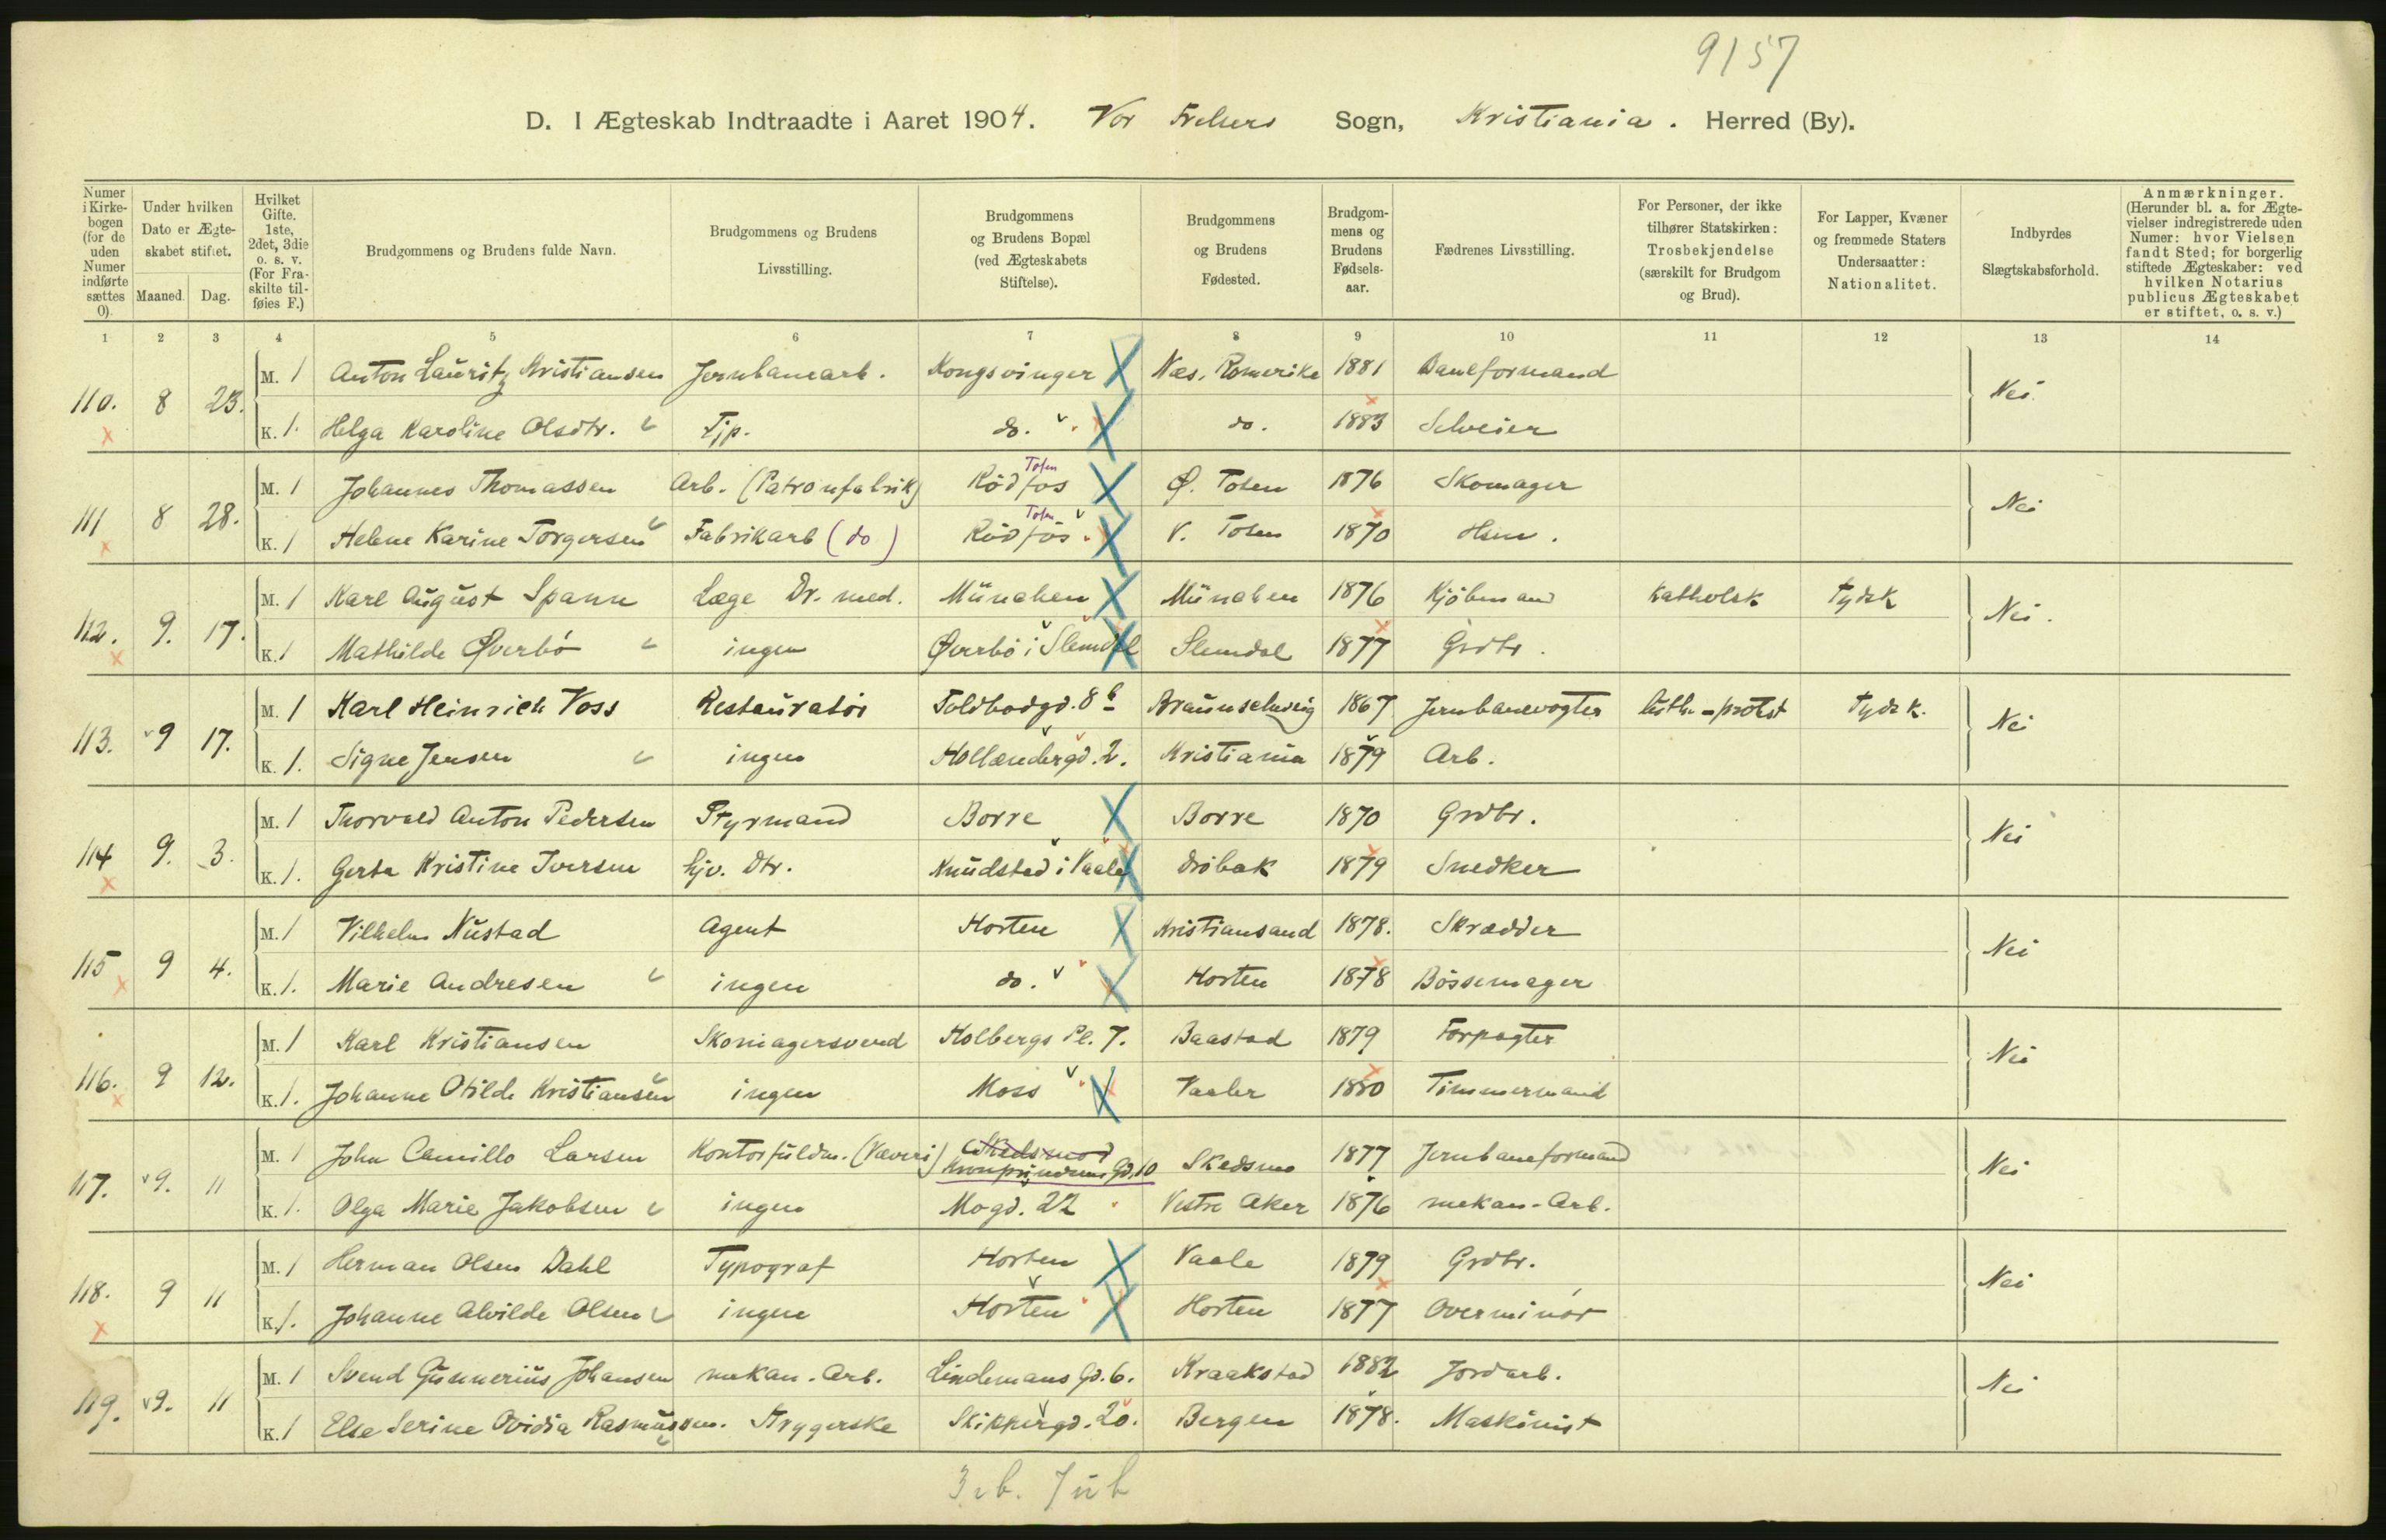 9157
D. I Ægteskab Indtraadte i Aaret 1904. Vor Frelsers Sogn, Kristiania. Herred (By).
Numer i Kirkebogen (for de uden Numer indførte sættes 0).
Under hvilken Dato er Ægteskabet stiftet.
Maaned. Dag.
Hvilket Gifte. 1ste, 2det, 3die o. s. v. (For Fraskilte tilføies F.)
Brudgommens og Brudens fulde Navn.
Brudgommens og Brudens Livsstilling.
Brudgommens og Brudens Bopæl (ved Ægteskabets Stiftelse).
Brudgommens og Brudens Fødested.
Brudgommens og Brudens Fødselsaar.
Fædrenes Livsstilling.
For Personer, der ikke tilhører Statskirken: Trosbekjendelse (særskilt for Brudgom og Brud).
For Lapper, Kvæner og fremmede Staters Undersaatter: Nationalitet.
Indbyrdes Slægtskabsforhold.
Anmærkninger. (Herunder bl. a. for Ægtevielser indregistrerede uden Numer: hvor Vielsen fandt Sted; for borgerlig stiftede Ægteskaber: ved hvilken Notarius publicus Ægteskabet er stiftet, o. s. v.)
1 2 3 4 5 6 7 8 9 10 11 12 13 14
110. 8 23. M. 1 Anton Lauritz Kristiansen Jernbanearb. Kongsvinger Næs, Romerike 1881 Baneformand Nei
K. 1. Helga Karoline Olsdtr. Tjp. do. do. 1883 Selveier
111 8 28. M. 1 Johannes Thomassen Arb. (Patronfabrik) Rødfos Toten Ø. Toten 1876 Skomager Nei
K. 1 Helene Karine Torgersen Fabrikarb (do) Rødfos Toten V. Toten 1870 Hsm.
112. 9. 17. M. 1 Karl August Spann Læge Dr. med. München München 1876 Kjøbmand Katholsk tydsk Nei.
K. 1 Mathilde Øverbö ingen Øverbö i Slemdal Slemdal 1877 Grdbr.
113. 9 17. M. 1 Karl Heinrich Voss Restauratör Toldbodgd. 8b Braunschweig 1867 Jernbanevogter luth.-protst tydsk. Nei
K. 1. Signe Jensen ingen Hollændergd. 2. Kristiania 1879 Arb.
114 9. 3. M. 1 Thorvald Anton Pedersen Styrmand Borre Borre 1870 Grdbr. Nei
K. 1. Gerta Kristine Iversen hjv. Dtr. Knudstad i Vaale Dröbak 1879 Snedker
115 9 4. M. 1 Vilhelm Nustad Agent Horten Kristiansand 1878. Skrædder Nei
K. 1. Marie Andresen ingen do. Horten 1878 Bössemager
116. 9 12. M. 1 Karl Kristiansen Skomagersvend Holbergs Pl. 7. Baastad 1879 Forpagter Nei
K. 1. Johanne Otilde Kristiansen ingen Moss Vaaler 1880 Timmermand
117. 9. 11 M. 1 John Camillo Larsen Kontorfuldm. (Væveri) Skedsmo Kronprindsens Gd. 10 Skedsmo 1877 Jernbaneformand Nei
K. 1. Olga Marie Jakobsen ingen Mogd. 22 Vestre Aker 1876 mekan-Arb.
118. 9 11 M. 1 Herman Olsen Dahl Typograf Horten Vaale 1879 Grdbr. Nei
K. 1. Johanne Alvilde Olsen ingen Horten Horten 1877 Overminör
119. 9. 11 M. 1 Svend Gunnerius Johansen mekan. Arb. Lindemans Gd. 6. Kraakstad 1882 Jordarb. Nei
K. 1 Else Serine Ovidia Rasmussen. Strygerske Skippergd. 20. Bergen 1878. Maskinist